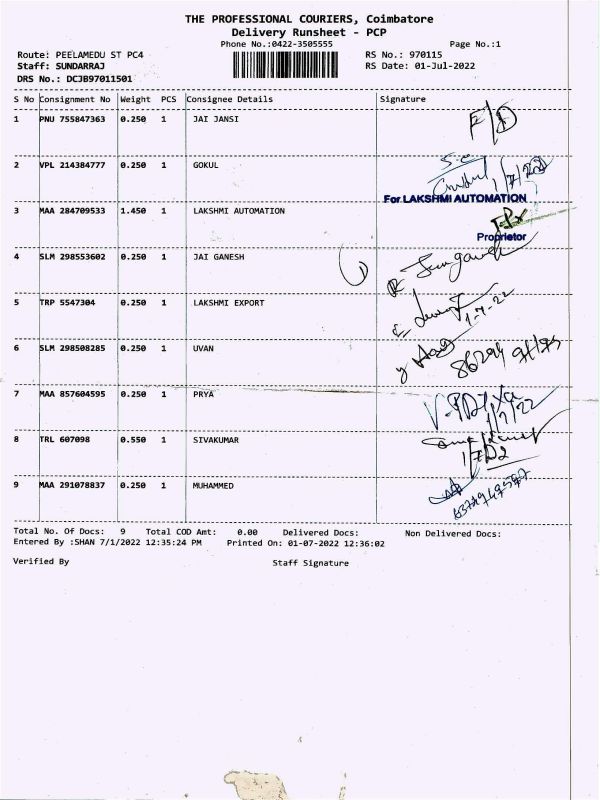 THE PROFESSIONAL COURIERS, Coimbatore
Delivery Runsheet - PCP
Phone No.:0422-3505555 Page No.:1
Route: PEELAMEDU ST PC4 RS No.: 970115
Staff: SUNDARRAJ RS Date: 01-Jul-2022
DRS No.: DCJB97011501
S No Consignment No Weight PCS Consignee Details Signature
1 PNU 755847363 0.250 1 JAI JANSI F/D
2 VPL 214384777 0.250 1 GOKUL
For LAKSHMI AUTOMATION
3 MAA 284709533 1.450 1 LAKSHMI AUTOMATION
Proprietor
4 SLM 298553602 0.250 1 JAI GANESH
5 TRP 5547304 0.250 1 LAKSHMI EXPORT 1-7-22
6 SLM 298508285 0.250 1 UVAN
7 MAA 857604595 0.250 1 PRYA 1/7/22
8 TRL 607098 0.550 1 SIVAKUMAR
9 MAA 291078837 0.250 1 MUHAMMED
Total No. Of Docs: 9 Total COD Amt: 0.00 Delivered Docs: Non Delivered Docs:
Entered By :SHAN 7/1/2022 12:35:24 PM Printed On: 01-07-2022 12:36:02
Verified By Staff Signature